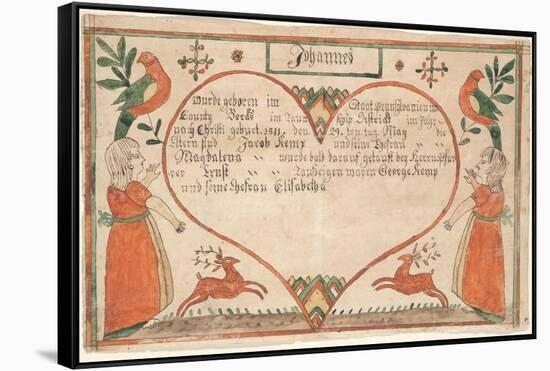 Johannes
Wurde geboren im Staat Pennsylvanien im
County Berks im Taunschip District im Jahr
nach Christi geburt. 1811. den 29. ten tag May die
Eltern sind Jacob Kemp und seine Ehefrau
Magdalena wurde bald darauf getauft bey Herrn Pfar
rer Ernst Taufzeugen waren George Kemp
und seine Ehefrau Elisabetha